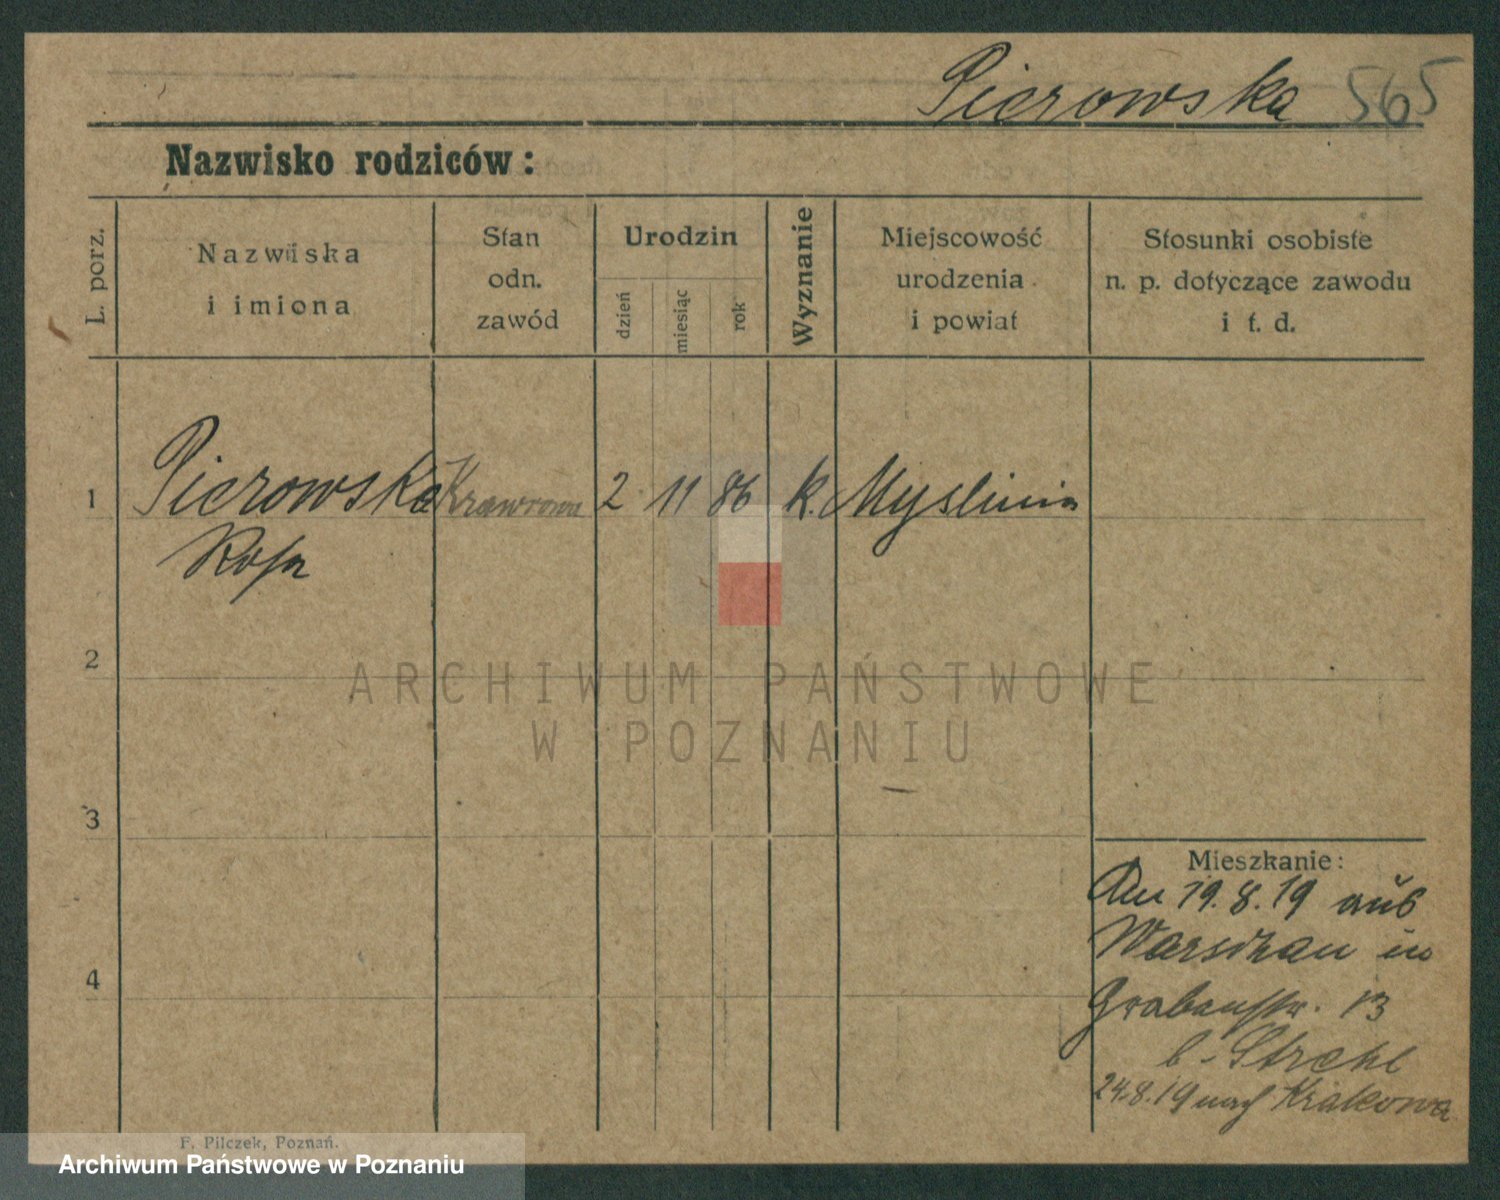 Pierowska 565
Nazwisko rodziców:
L. porz.
Nazwiska
i imiona
Stan
odn.
zawód
Urodzin
dzień
miesiąc
rok
Wyznanie
Miejscowość
urodzenia
i powiat
Stosunki osobiste
n. p. dotyczące zawodu
i t. d.
1 Pierowska Krawcowa 2 11 86 k. Myslinia
Rosa
2
3
4
Mieszkanie:
Am 19.8.19 aus
Warschau in
Grabenstr. 13
b - Strehl
24.8.19 nach Krakowa
F. Pilczek, Poznań.
ARCHIWUM PAŃSTWOWE
W POZNANIU
Archiwum Państwowe w Poznaniu